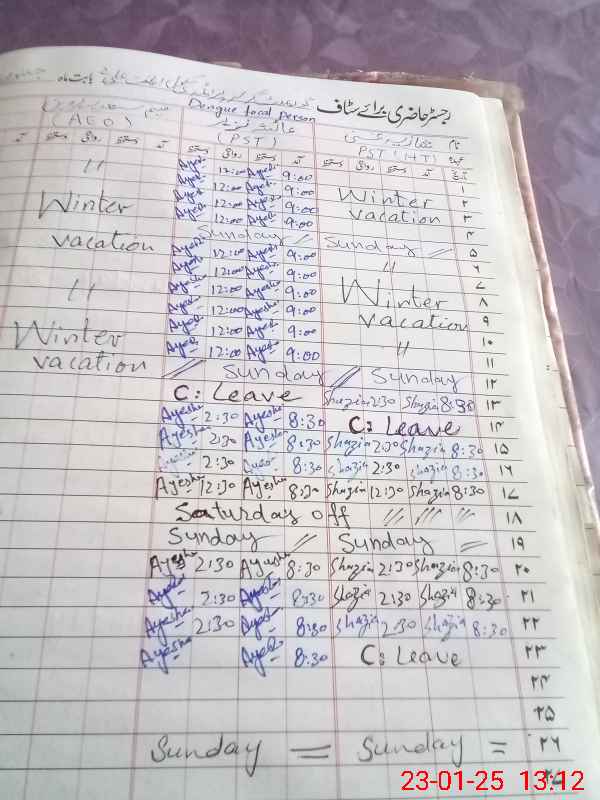 رجسٹر حاضری برائے سٹاف
Dengue focal person
نام
عہدہ PST (HT) (PST) (AEO)
تاریخ آمد دستخط روانگی دستخط آمد دستخط روانگی دستخط آمد
۱ 9:00 Ayesha 12:00 Ayesha "
۲ Winter 9:00 Ayesha 12:00 Ayesha
۳ vacation 9:00 Ayesha 12:00 Ayesha Winter
۴ 9:00 Ayesha 12:00 Ayesha
۵ Sunday = Sunday // vacation
۶ " 9:00 Ayesha 12:00 Ayesha
۷ 9:00 Ayesha 12:00 Ayesha
۸ Winter 9:00 Ayesha 12:00 Ayesha "
۹ vacation 9:00 Ayesha 12:00 Ayesha
۱۰ 9:00 Ayesha 12:00 Ayesha Winter
۱۱ " 9:00 Ayesha 12:00 Ayesha vacation
۱۲ Sunday // Sunday //
۱۳ 8:30 Shazia 2:30 Shazia C: Leave
۱۴ C: Leave 8:30 Ayesha 2:30 Ayesha
۱۵ 8:30 Shazia 2:30 Shazia 8:30 Ayesha 2:30 Ayesha
۱۶ 8:30 Shazia 2:30 Shazia 8:30 2:30
۱۷ 8:30 Shazia 12:30 Shazia 8:30 Ayesha 12:30 Ayesha
۱۸ Saturday off // // //
۱۹ Sunday = Sunday //
۲۰ 8:30 Shazia 2:30 Shazia 8:30 Ayesha 2:30 Ayesha
۲۱ 8:30 Shazia 2:30 Shazia 8:30 Ayesha 2:30 Ayesha
۲۲ 8:30 Shazia 2:30 Shazia 8:30 Ayesha 2:30 Ayesha
۲۳ C: Leave 8:30 Ayesha Ayesha
۲۴
۲۵
۲۶ Sunday = Sunday =
۲۷
23-01-25 13:12